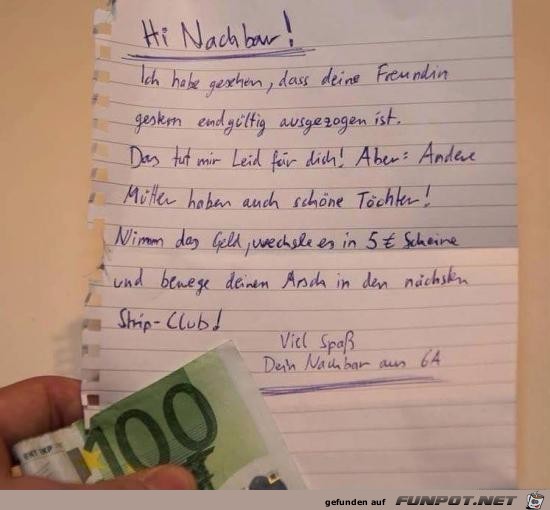 Hi Nachbar!
Ich habe gesehen, dass deine Freundin
gestern endgültig ausgezogen ist.
Das tut mir Leid für dich! Aber: Andere
Mütter haben auch schöne Töchter!
Nimm das Geld, wechsle es in 5 € Scheine
und bewege deinen Arsch in den nächsten
Strip-Club!
Viel Spaß
Dein Nachbar aus 6A
100
gefunden auf FUNPOT.NET